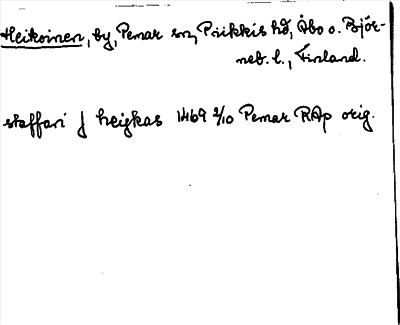 Heikoinen, by, Pemar sn, Piikkis hd, Åbo o. Björ-
neb. l., Finland.
staffari j heijkas 1469 2/10 Pemar RAp orig.